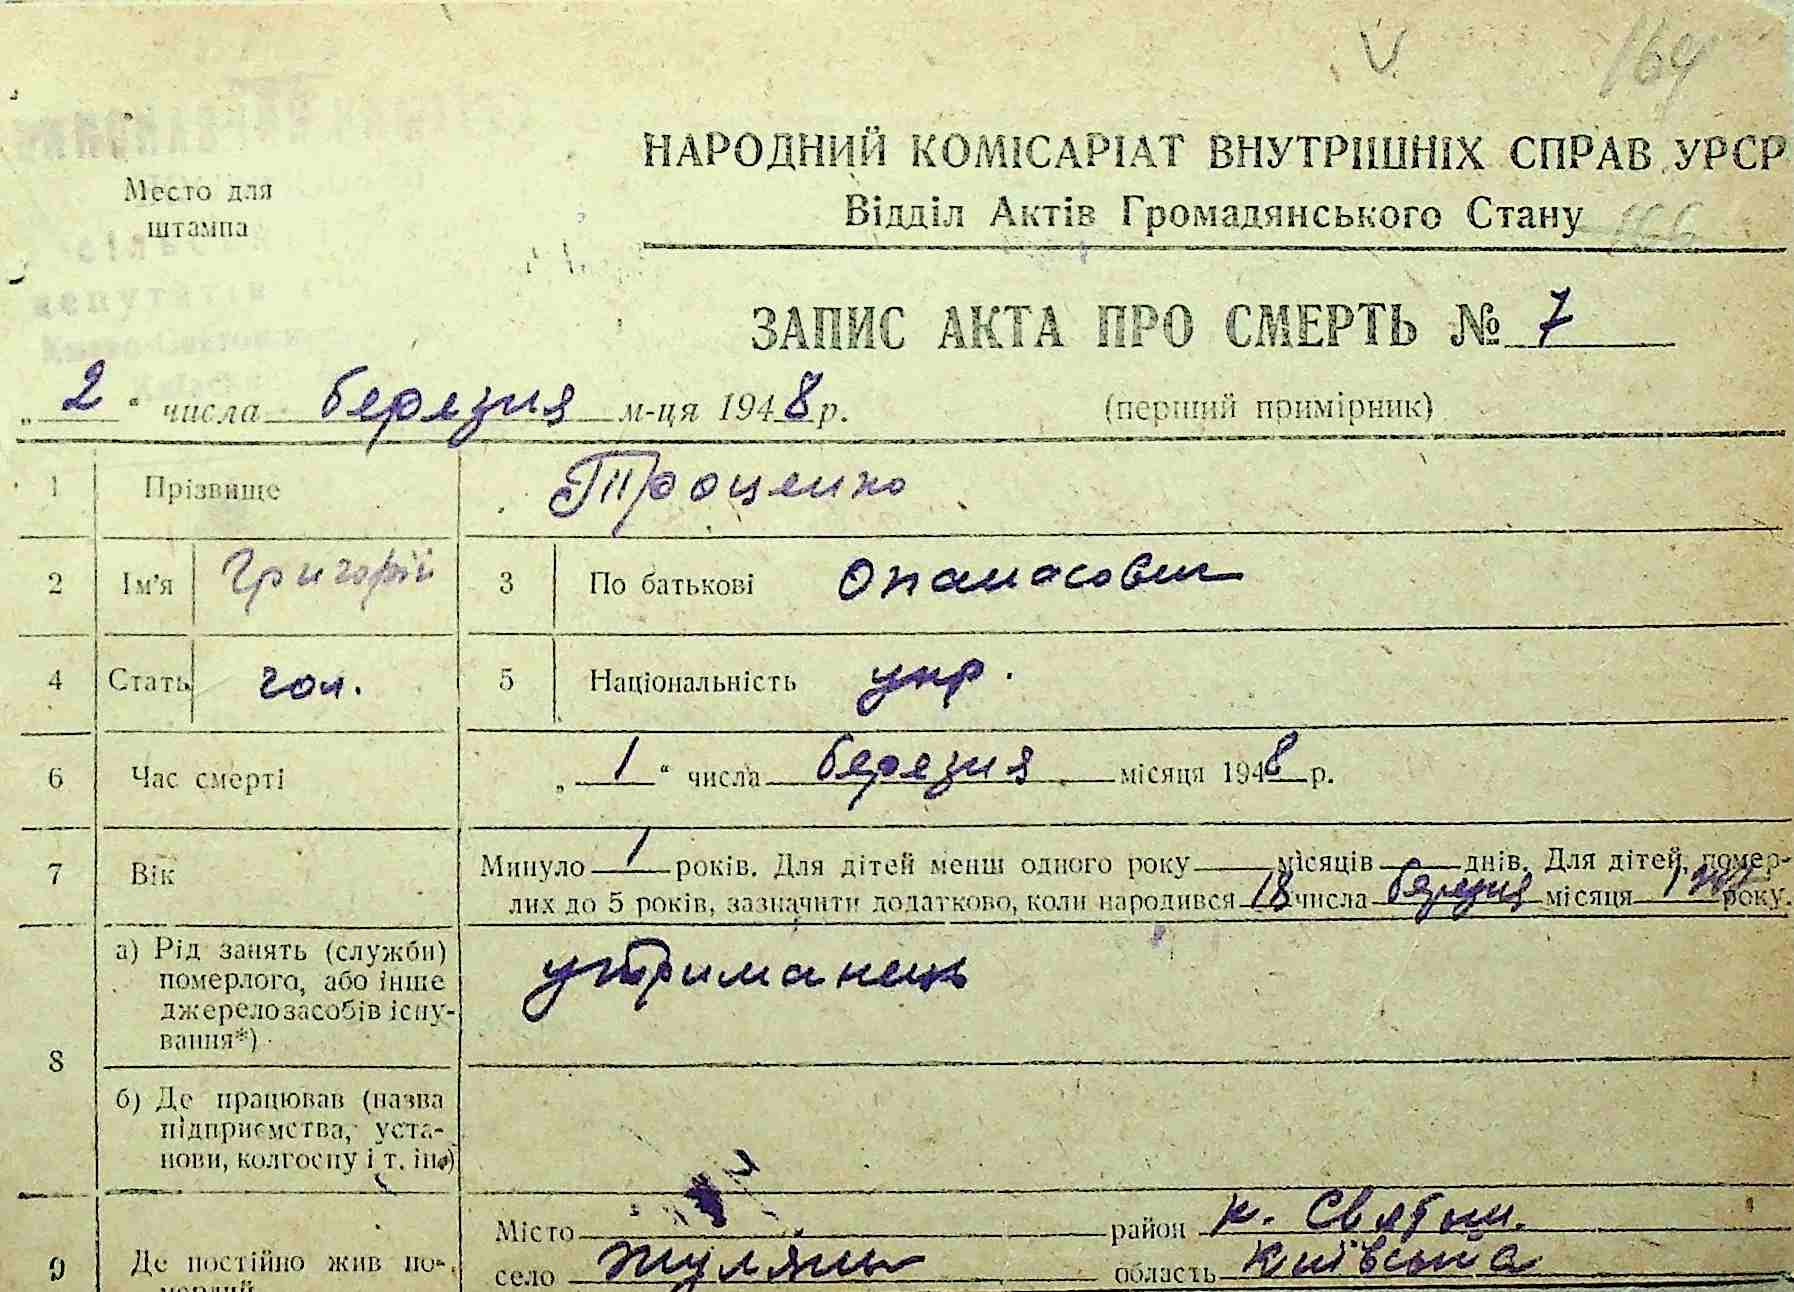 164
Место для
штампа
НАРОДНИЙ КОМІСАРІАТ ВНУТРІШНІХ СПРАВ УРСР
Відділ Актів Громадянського Стану
166
депутатів
ЗАПИС АКТА ПРО СМЕРТЬ № 7
„ 2 “ числа березня м-ця 1948 р. (перший примірник)
1 Прізвище Троценко
2 Ім'я Григорій 3 По батькові Опанасович
4 Стать чол. 5 Національність укр.
6 Час смерті „ 1 “ числа березня місяця 1948 р.
7 Вік Минуло 1 років. Для дітей менш одного року місяців днів. Для дітей, помер-
лих до 5 років, зазначити додатково, коли народився 18 числа березня місяця року.
8 а) Рід занять (служби)
померлого, або інше
джерело засобів існу-
вання*) утриманець
б) Де працював (назва
підприємства, уста-
нови, колгоспу і т. ін.)
9 Де постійно жив по-
мерлий
Місто район К. Святош.
село Жуляни область Київська